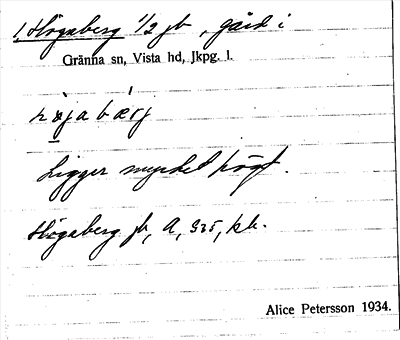 1 Högaberg 1/2 jb, gård i
Gränna sn, Vista hd, Jkpg. l.
höjabærj
Ligger mycket högt.
Högaberg jb, A, S35, kk.
Alice Petersson 1934.